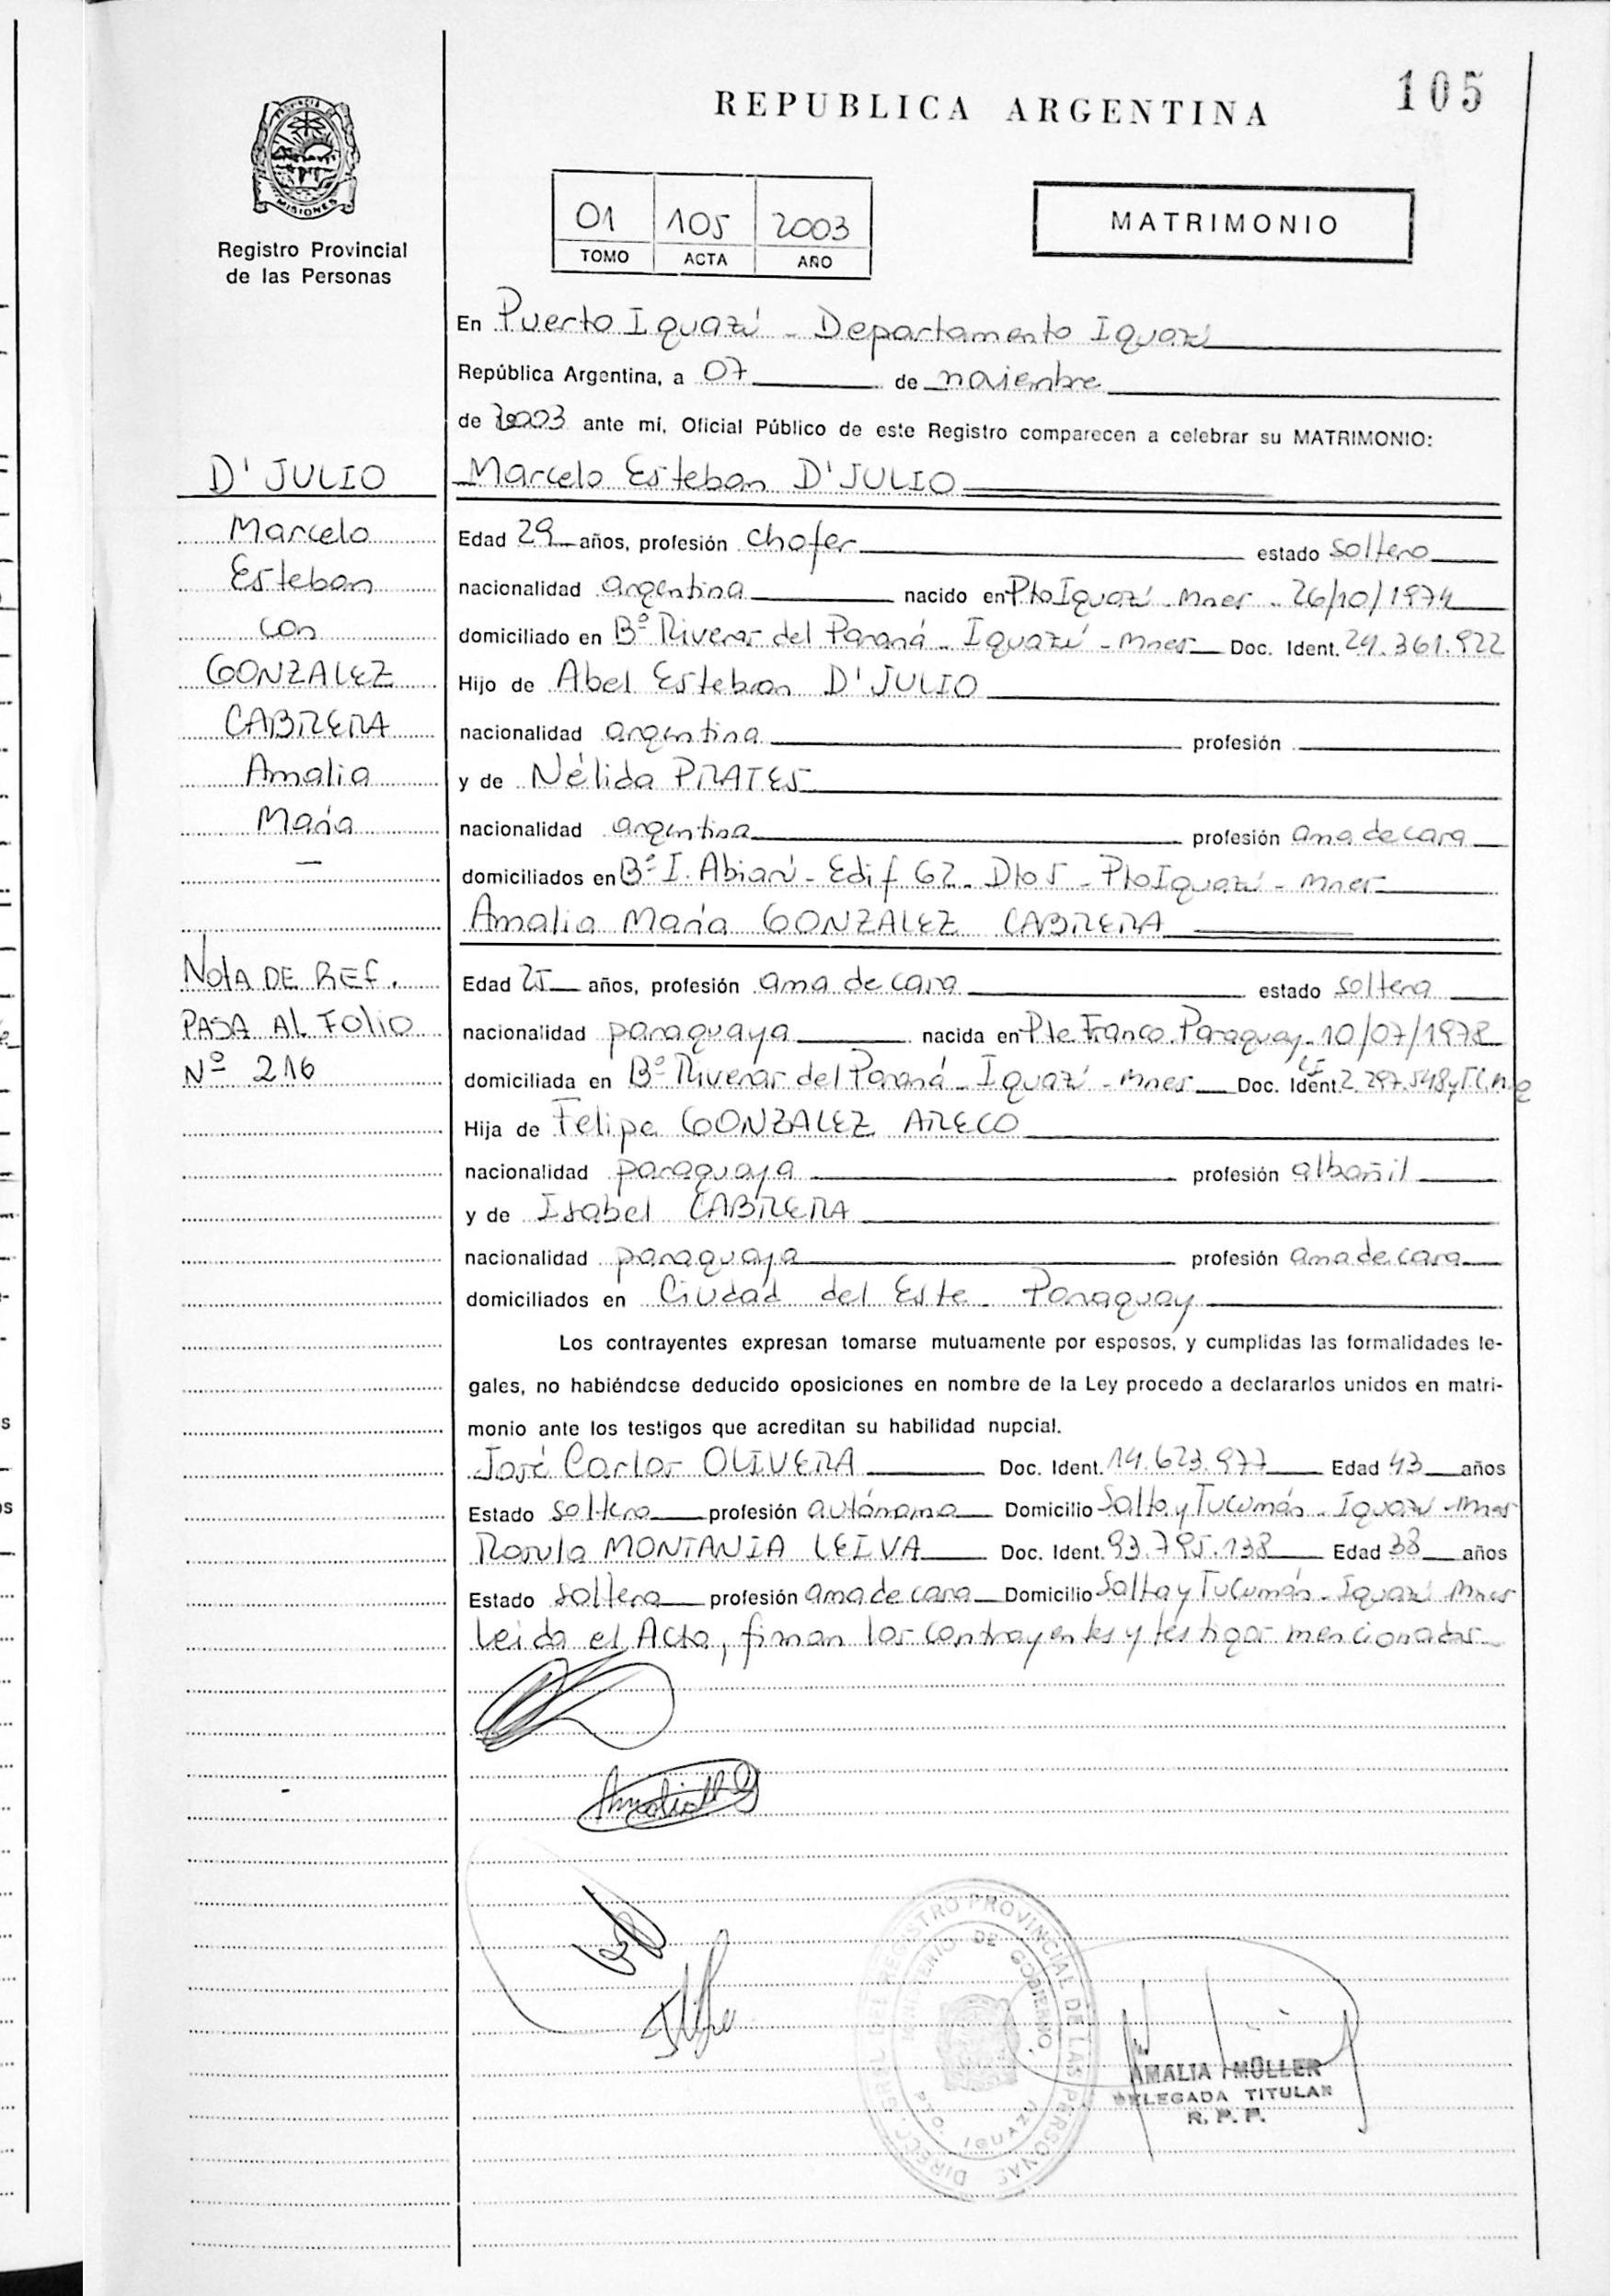 105
REPUBLICA ARGENTINA
PROVINCIA DE
MISIONES
Registro Provincial
de las Personas
01 105 2003
TOMO ACTA AÑO
MATRIMONIO
En Puerto Iguazú - Departamento Iguazú
República Argentina, a 07 de noviembre
de 2003 ante mí, Oficial Público de este Registro comparecen a celebrar su MATRIMONIO:
D'JULIO
Marcelo
Esteban
con
GONZALEZ
CABRERA
Amalia
María
—
NotA DE REF.
PASA AL FOliO
Nº 216
Marcelo Esteban D'JULIO
Edad 29 años, profesión chofer estado soltero
nacionalidad argentina nacido en Pto Iguazú - Mnes - 26/10/1974
domiciliado en Bº Riveras del Paraná - Iguazú - Mnes Doc. Ident. 24.361.922
Hijo de Abel Esteban D'JULIO
nacionalidad argentina profesión
y de Nélida PRATES
nacionalidad argentina profesión ama de casa
domiciliados en Bº I. Abiarú - Edif 62 - Dto 5 - Pto Iguazú - Mnes
Amalia María GONZALEZ CABRERA
Edad 25 años, profesión ama de casa estado soltera
nacionalidad paraguaya nacida en Pte. Franco Paraguay - 10/07/1978
domiciliada en Bº Riveras del Paraná - Iguazú - Mnes Doc. Ident. CI 2.297.548 y
Hija de Felipe GONZALEZ ARECO
nacionalidad paraguaya profesión albañil
y de Isabel CABRERA
nacionalidad paraguaya profesión ama de casa
domiciliados en Ciudad del Este - Paraguay
Los contrayentes expresan tomarse mutuamente por esposos, y cumplidas las formalidades le-
gales, no habiéndose deducido oposiciones en nombre de la Ley procedo a declararlos unidos en matri-
monio ante los testigos que acreditan su habilidad nupcial.
José Carlos OLIVERA Doc. Ident. 14.623.977 Edad 43 años
Estado soltero profesión autónomo Domicilio Salta y Tucumán - Iguazú - Mnes
Rosula MONTANIA LEIVA Doc. Ident. 93.795.138 Edad 38 años
Estado soltera profesión ama de casa Domicilio Salta y Tucumán - Iguazú Mnes
Leida el Acta, firman los contrayentes y testigos mencionados
DIRECC. GRAL. DEL REGISTRO PROVINCIAL DE LAS PERSONAS
MINISTERIO DE GOBIERNO
PTO. IGUAZU
AMALIA MÜLLER
DELEGADA TITULAR
R. P. P.